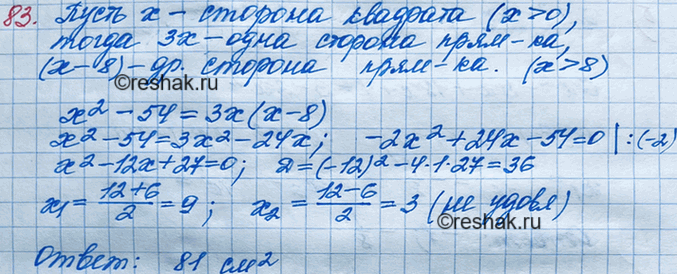 83. Пусть x - сторона квадрата (x>0),
тогда 3x - одна сторона прям-ка,
(x-8) - др. сторона прям-ка. (x>8)
©reshak.ru
x² - 54 = 3x(x-8)
x² - 54 = 3x² - 24x; -2x² + 24x - 54 = 0 | : (-2)
x² - 12x + 27 = 0; D = (-12)² - 4·1·27 = 36
x₁ = (12+6)/2 = 9; x₂ = (12-6)/2 = 3 (не удовл)
©reshak.ru
Ответ: 81 см²